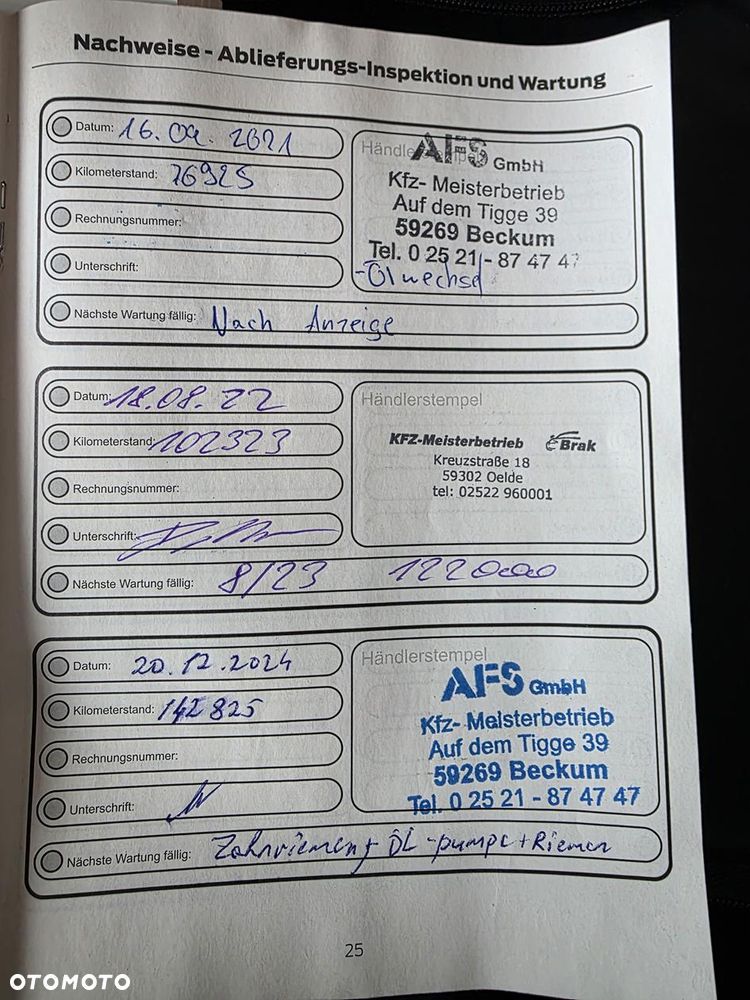 Nachweise - Ablieferungs-Inspektion und Wartung
Datum: 16.09.2021
Kilometerstand: 76925
Rechnungsnummer:
Unterschrift:
Nächste Wartung fällig: Nach Anzeige
Händlerstempel
AFS GmbH
Kfz- Meisterbetrieb
Auf dem Tigge 39
59269 Beckum
Tel. 0 25 21 - 87 47 47
-Ölwechsel
Datum: 18.08.22
Kilometerstand: 102323
Rechnungsnummer:
Unterschrift:
Nächste Wartung fällig: 8/23 122000
Händlerstempel
KFZ-Meisterbetrieb Brak
Kreuzstraße 18
59302 Oelde
tel: 02522 960001
Datum: 20.12.2024
Kilometerstand: 142825
Rechnungsnummer:
Unterschrift:
Nächste Wartung fällig: Zahnriemen + ÖL-pumpe + Riemen
Händlerstempel
AFS GmbH
Kfz- Meisterbetrieb
Auf dem Tigge 39
59269 Beckum
Tel. 0 25 21 - 87 47 47
25
OTOMOTO